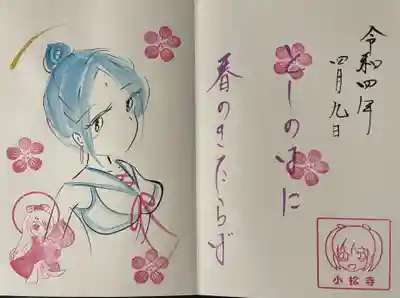 令和四年
四月九日
としのはに
春のきたらば
小松寺